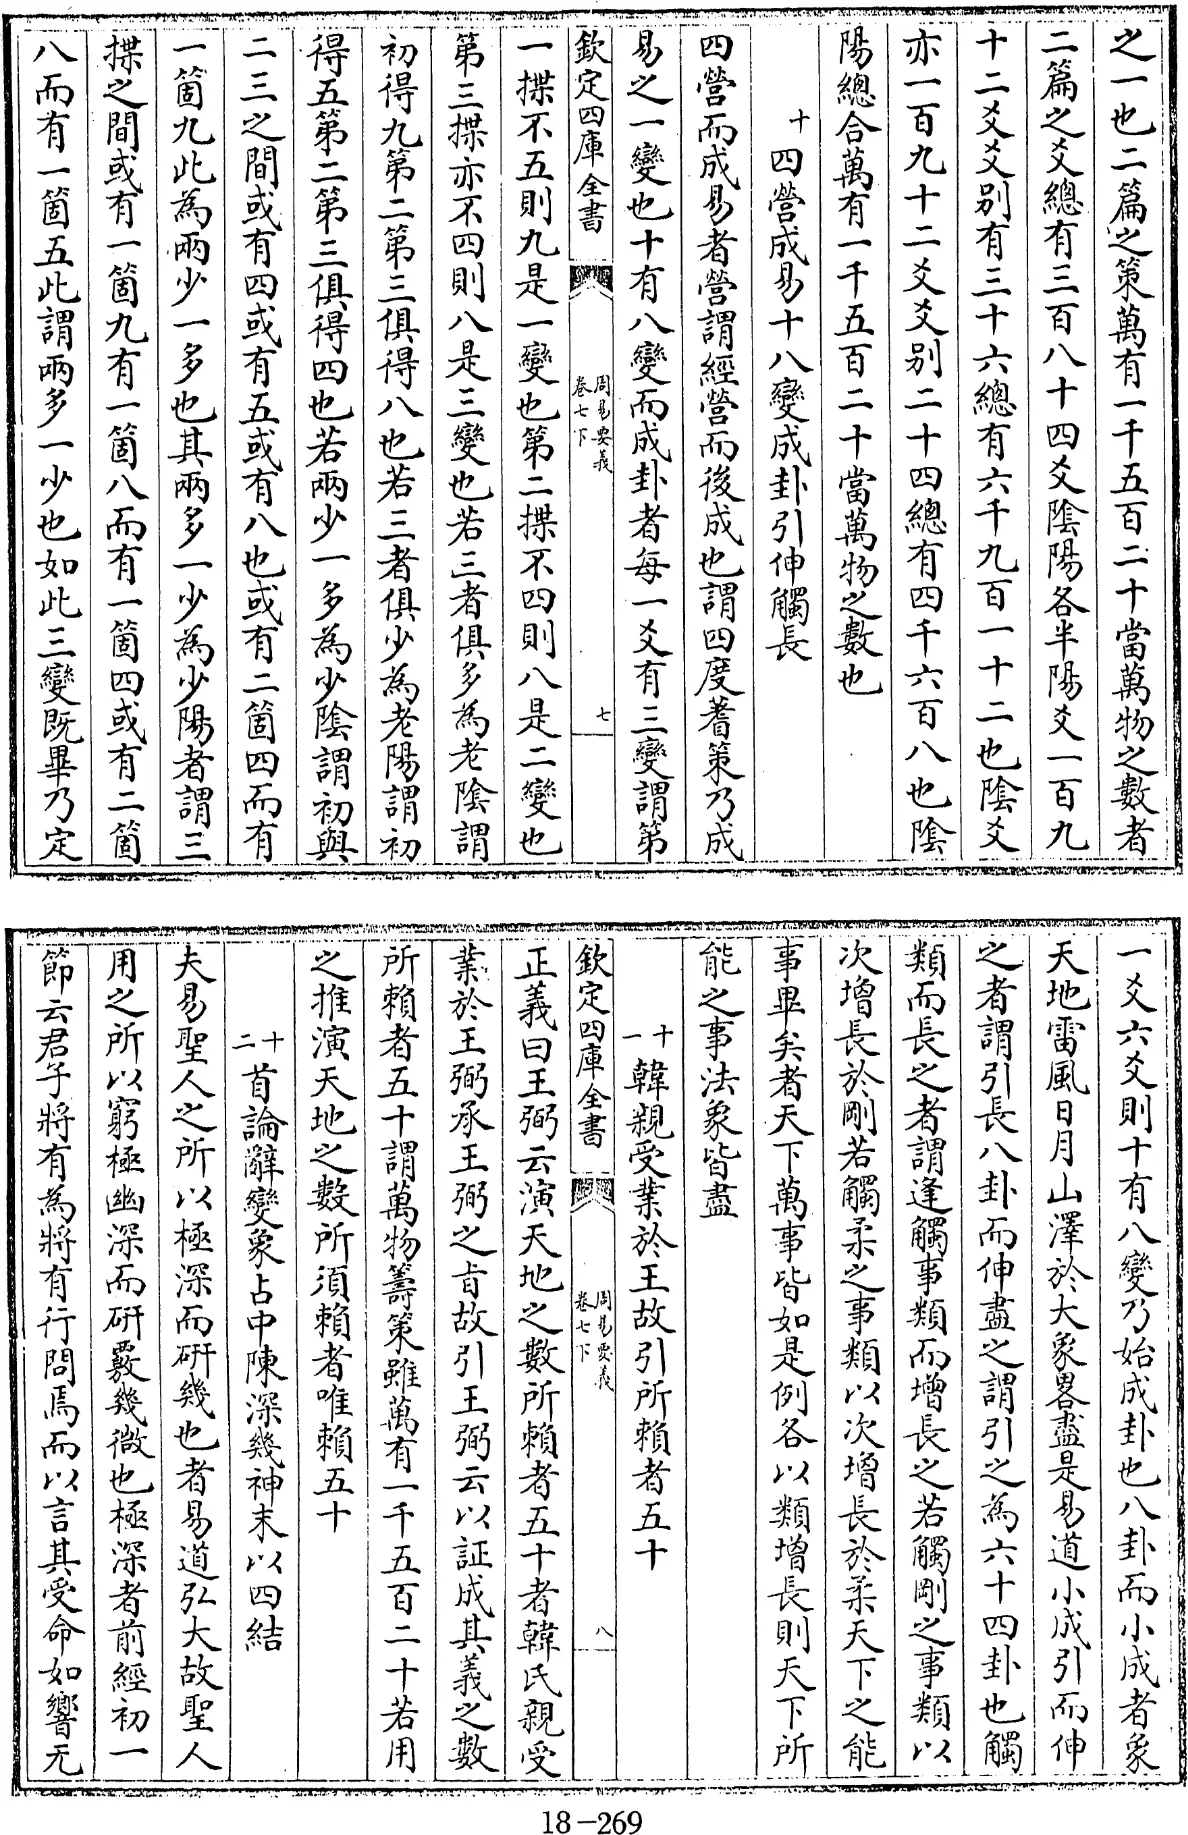 之一也二篇之策萬有一千五百二十當萬物之數者
二篇之爻總有三百八十四爻陰陽各半陽爻一百九
十二爻爻别有三十六總有六千九百一十二也陰爻
亦一百九十二爻爻别二十四總有四千六百八也陰
陽總合萬有一千五百二十當萬物之數也
十四營成易十八變成卦引伸觸長
四營而成易者營謂經營而後成也謂四度蓍策乃成
易之一變也十有八變而成卦者每一爻有三變謂第
欽定四庫全書
周易要義
卷七下
七
一揲不五則九是一變也第二揲不四則八是二變也
第三揲亦不四則八是三變也若三者俱多為老陰謂
初得九第二第三俱得八也若三者俱少為老陽謂初
得五第二第三俱得四也若兩少一多為少陰謂初與
二三之間或有四或有五或有八也或有二箇四而有
一箇九此為兩少一多也其兩多一少為少陽者謂三
揲之間或有一箇九有一箇八而有一箇四或有二箇
八而有一箇五此謂兩多一少也如此三變既畢乃定
一爻六爻則十有八變乃始成卦也八卦而小成者象
天地雷風日月山澤於大象畧盡是易道小成引而伸
之者謂引長八卦而伸盡之謂引之為六十四卦也觸
類而長之者謂逢觸事類而增長之若觸剛之事類以
次增長於剛若觸柔之事類以次增長於柔天下之能
事畢矣者天下萬事皆如是例各以類增長則天下所
能之事法象皆盡
十一韓親受業於王故引所賴者五十
欽定四庫全書
周易要義
卷七下
八
正義曰王弼云演天地之數所賴者五十者韓氏親受
業於王弼承王弼之旨故引王弼云以証成其義之數
所賴者五十謂萬物籌策雖萬有一千五百二十若用
之推演天地之數所須賴者唯賴五十
十二首論辭變象占中陳深幾神末以四結
夫易聖人之所以極深而研幾也者易道弘大故聖人
用之所以窮極幽深而研覈幾微也極深者前經初一
節云君子將有為將有行問焉而以言其受命如響无
18-269